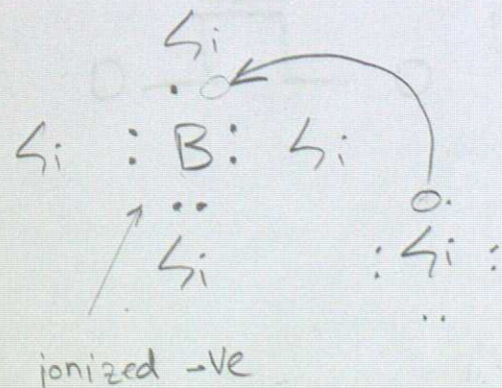 Si
Si : B : Si
Si
: Si :
ionized -ve